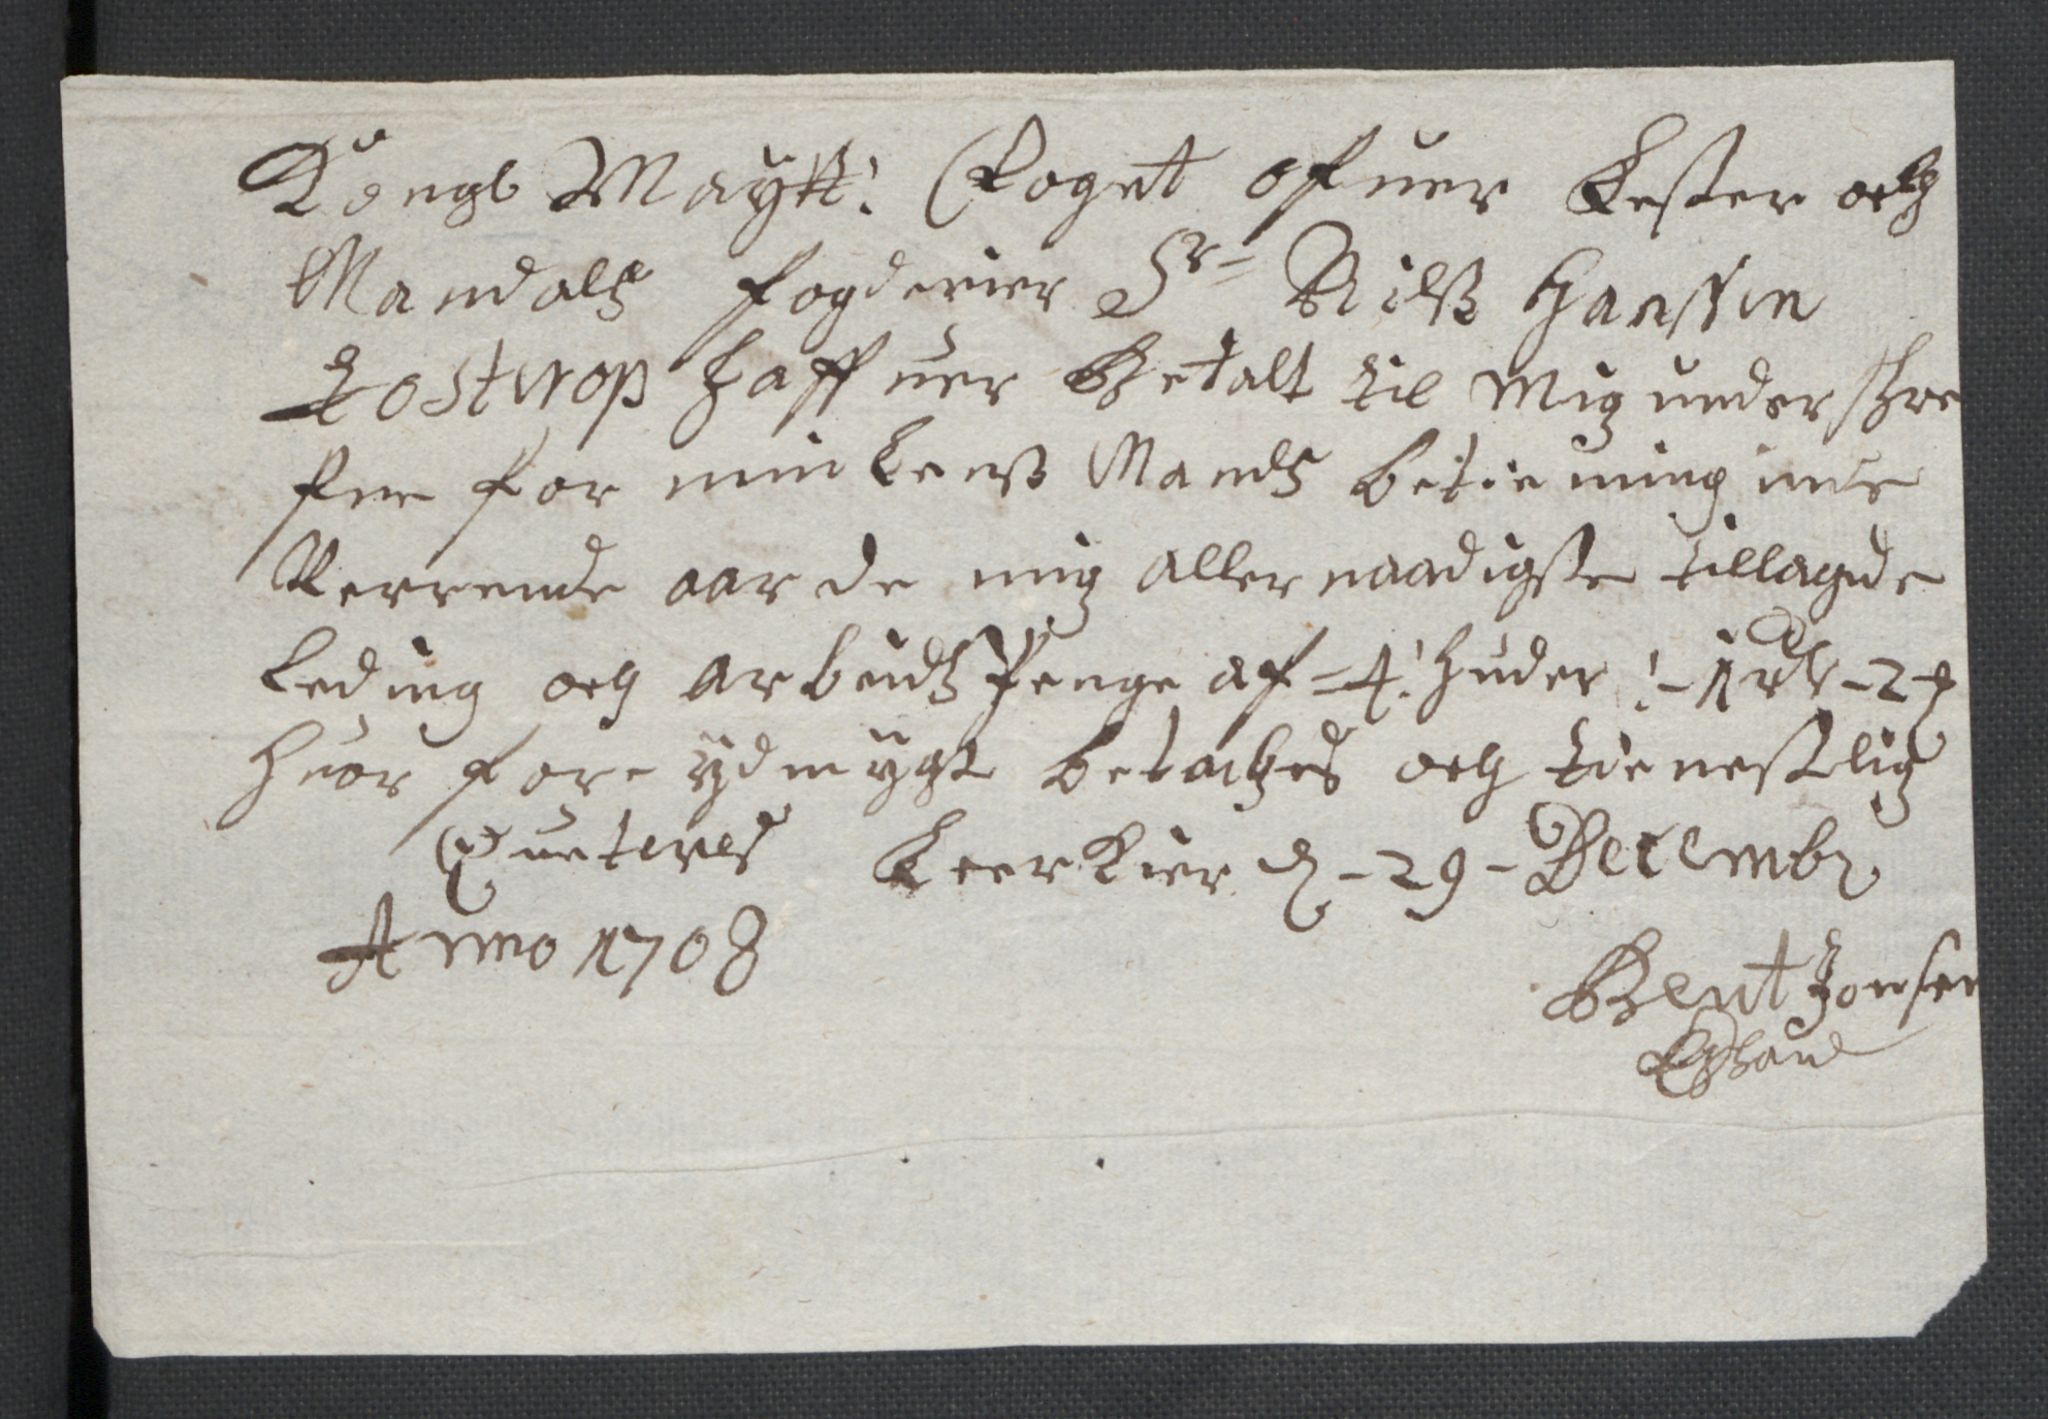 Kongl Maytt: Foget ofuer Lester och
Mandals fogderier Sr= Nilss Hanssen
Tosterop haffuer Betalt til Mig underskre
fne for min Lenss Mands betiening inde
Verrende aar de mig allernaadigste tillagde
Leding och arbeids Penge af =4: huder :- 1 rdr - 2
huor fore ydmygt betaches och tienestelig
Queteres Leerkier d - 29 - Decembr
Anno 1708
Bent Jonsen